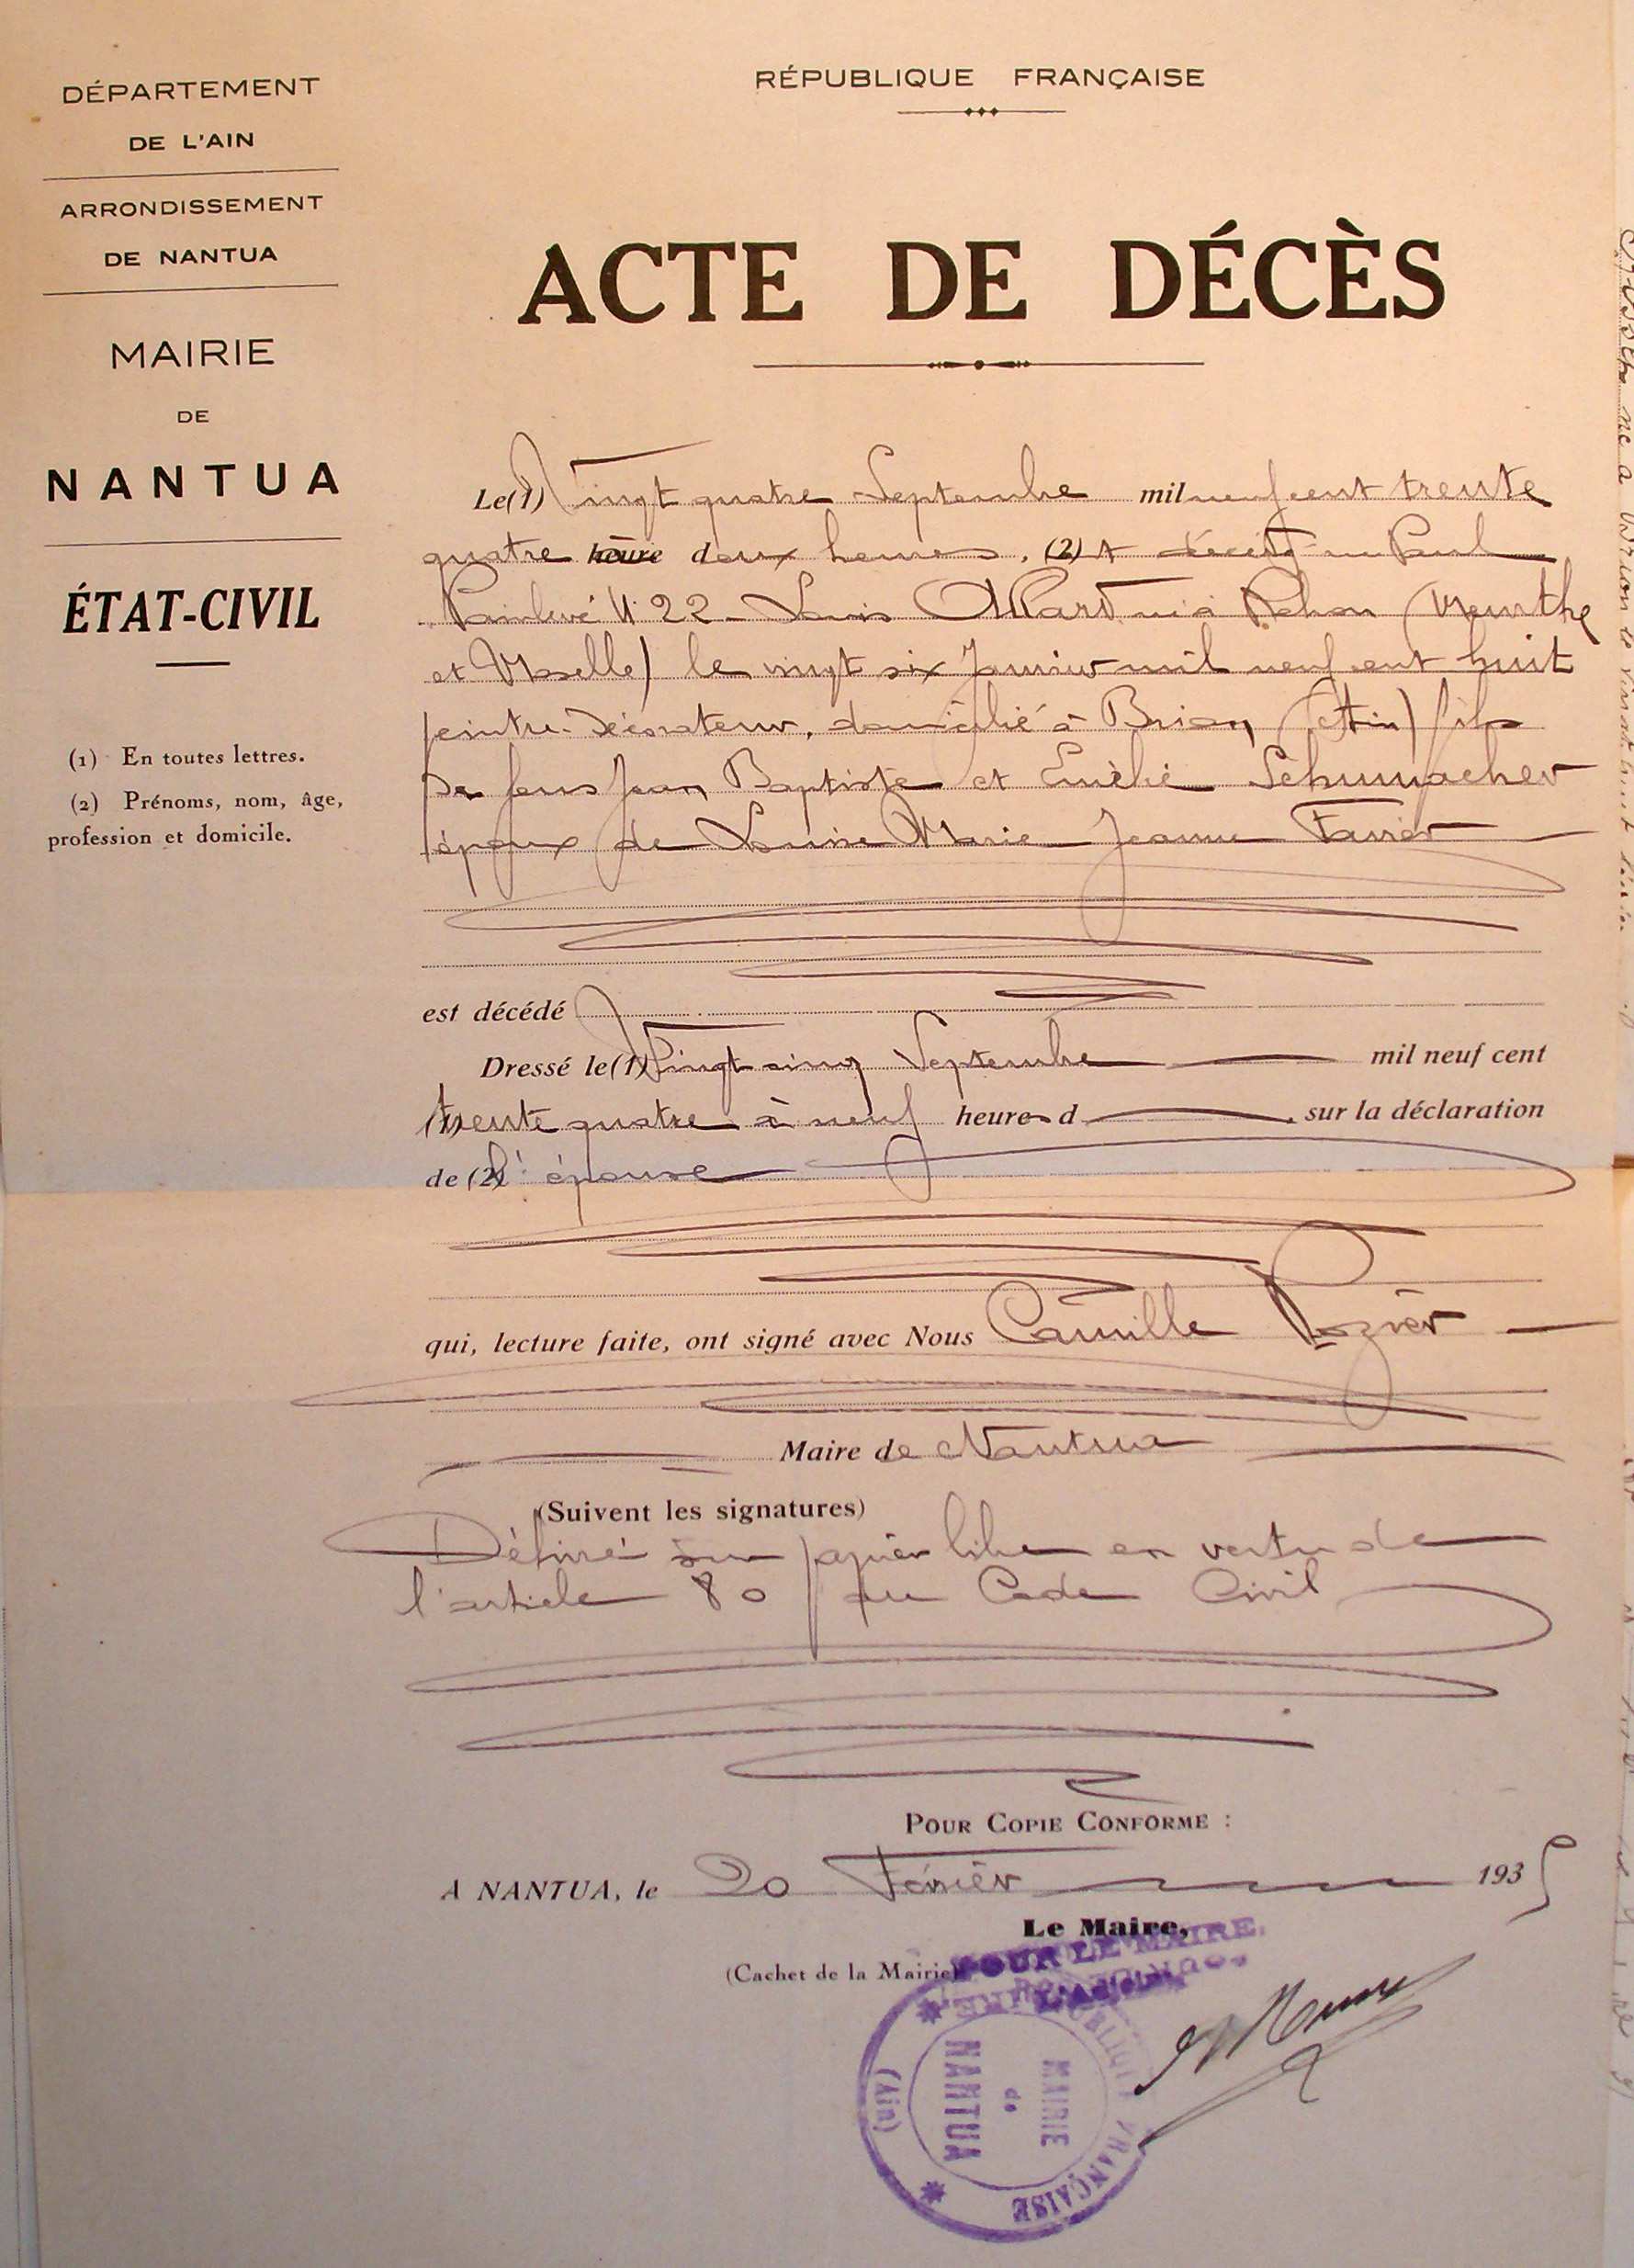 DÉPARTEMENT
DE L'AIN
ARRONDISSEMENT
DE NANTUA
MAIRIE
DE
NANTUA
ÉTAT-CIVIL
(1) En toutes lettres.
(2) Prénoms, nom, âge,
profession et domicile.
RÉPUBLIQUE FRANÇAISE
ACTE DE DÉCÈS
Le (1) Vingt quatre Septembre mil neuf cent trente
quatre heure deux heures, (2) A décédé rue Paul
Painlevé N: 22 - Louis Allard né à Rehon (Meurthe
et Moselle) le vingt six Janvier mil neuf cent huit
peintre-décorateur, domicilié à Brion (Ain) fils
de feus Jean Baptiste et Emélie Schumacher
époux de Louise Marie Jeanne Favier
est décédé
Dressé le (1) Vingt cinq Septembre mil neuf cent
trente quatre à neuf heures d , sur la déclaration
de (2) l'épouse
qui, lecture faite, ont signé avec Nous Camille Rozier
Maire de Nantua
(Suivent les signatures)
Délivré sur papier libre en vertu de
l'article 80 du Code Civil
POUR COPIE CONFORME :
A NANTUA, le 20 Février 1935
Le Maire,
POUR LE MAIRE.
(Cachet de la Mairie)
RÉPUBLIQUE FRANÇAISE
MAIRIE
de
NANTUA
(Ain)